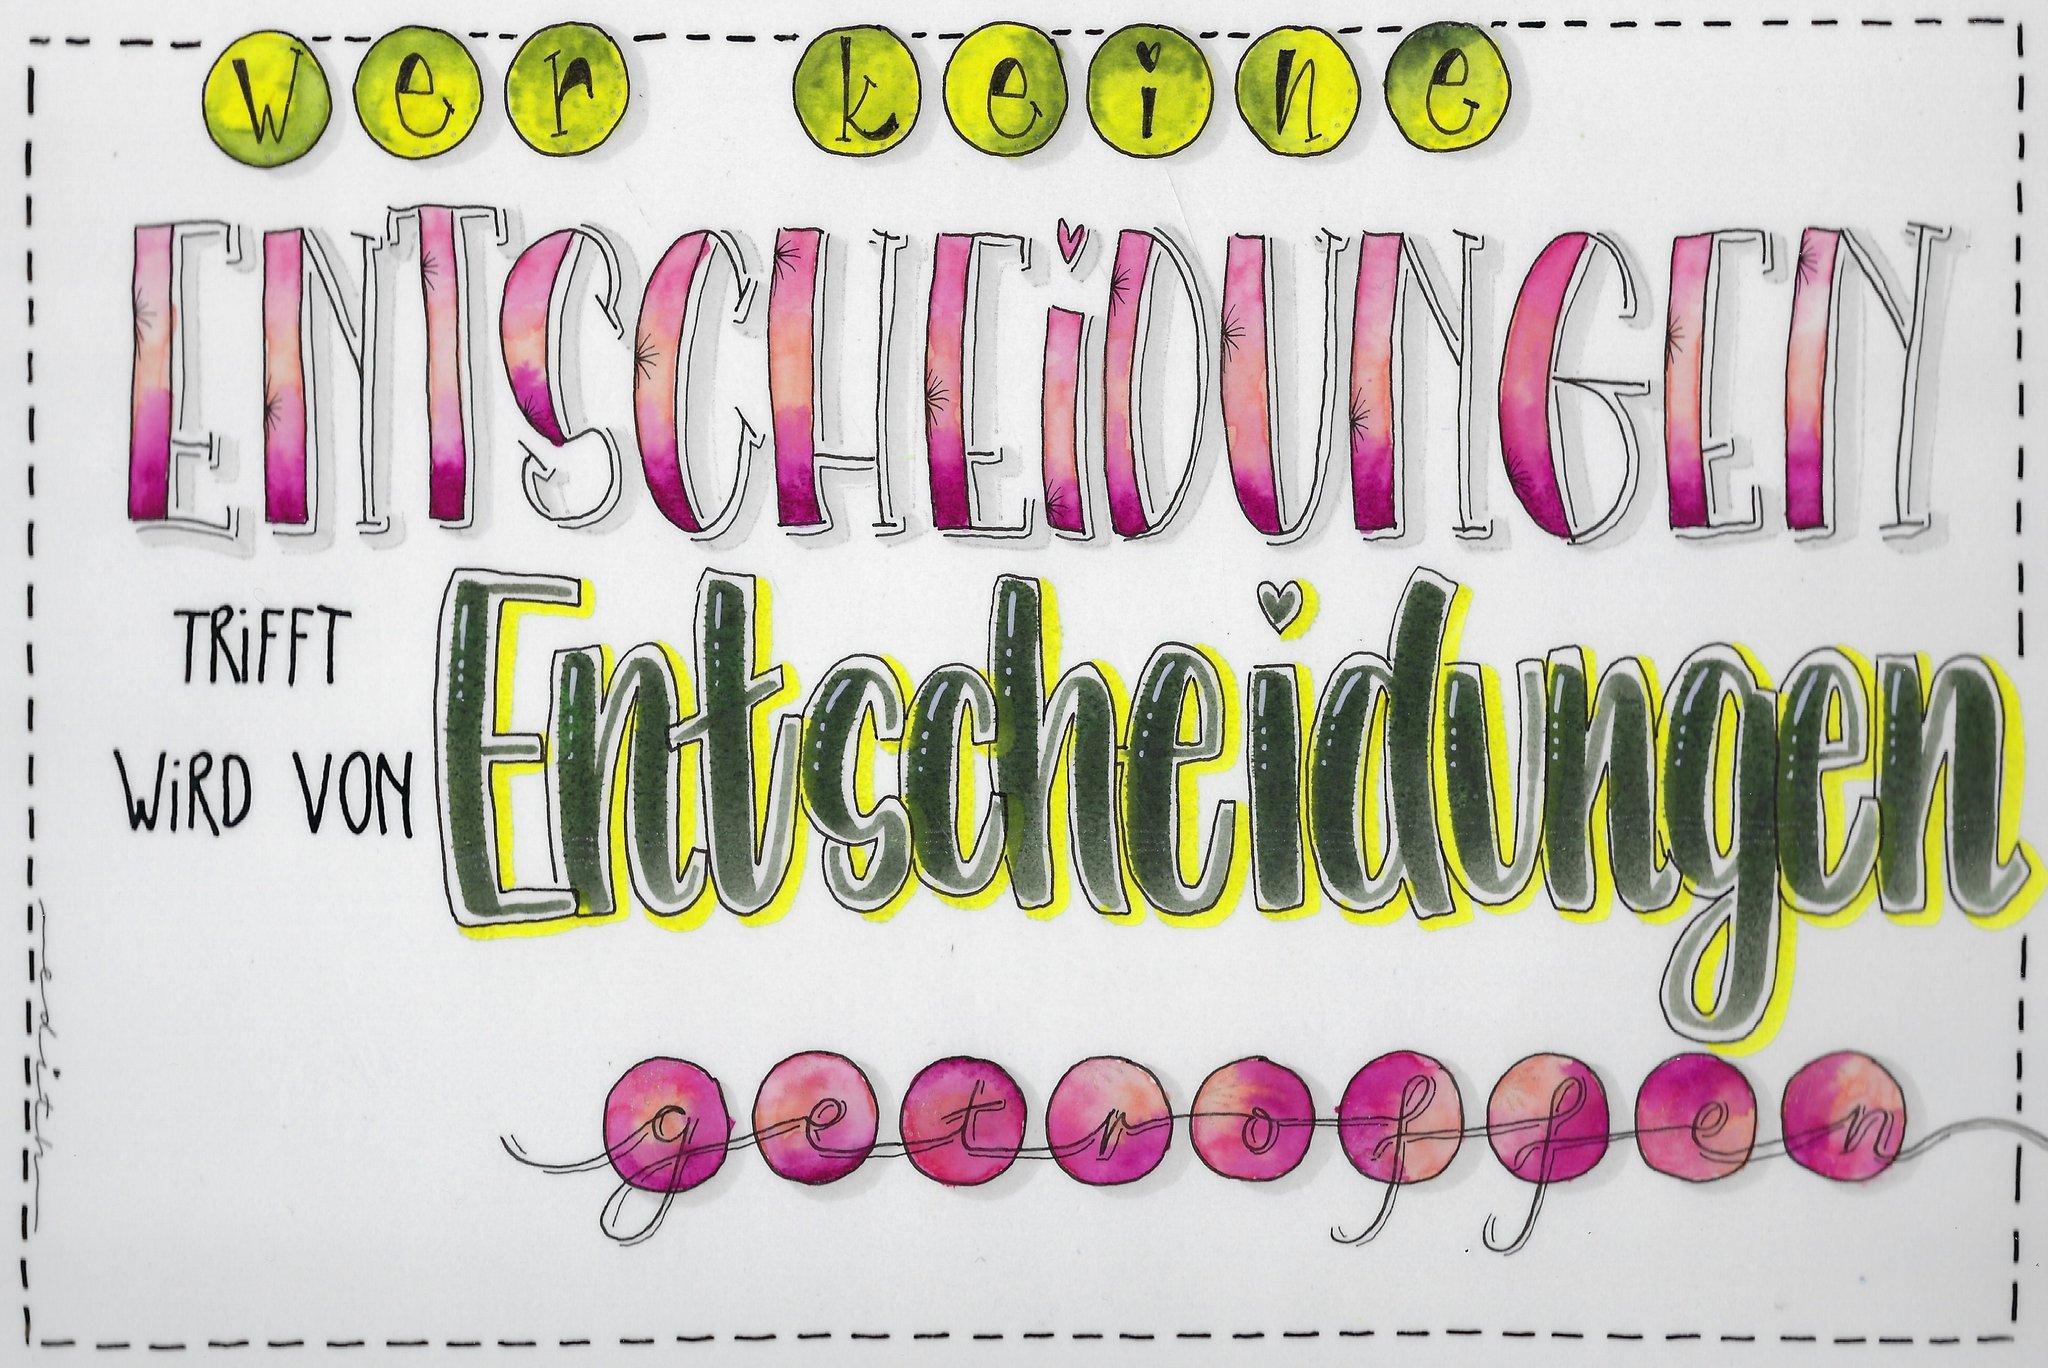 wer keine
ENTSCHEiDUNGEN
TRiFFT
WiRD VON
Entscheidungen
getroffen